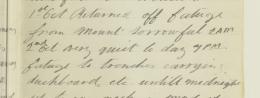 1st Oct Returned off fatuige
from Mount Sorrowful 2 AM.
2nd Oct Very quiet to day 7 PM.
fatuige to trenches carrying
duckboard etc untill midnight